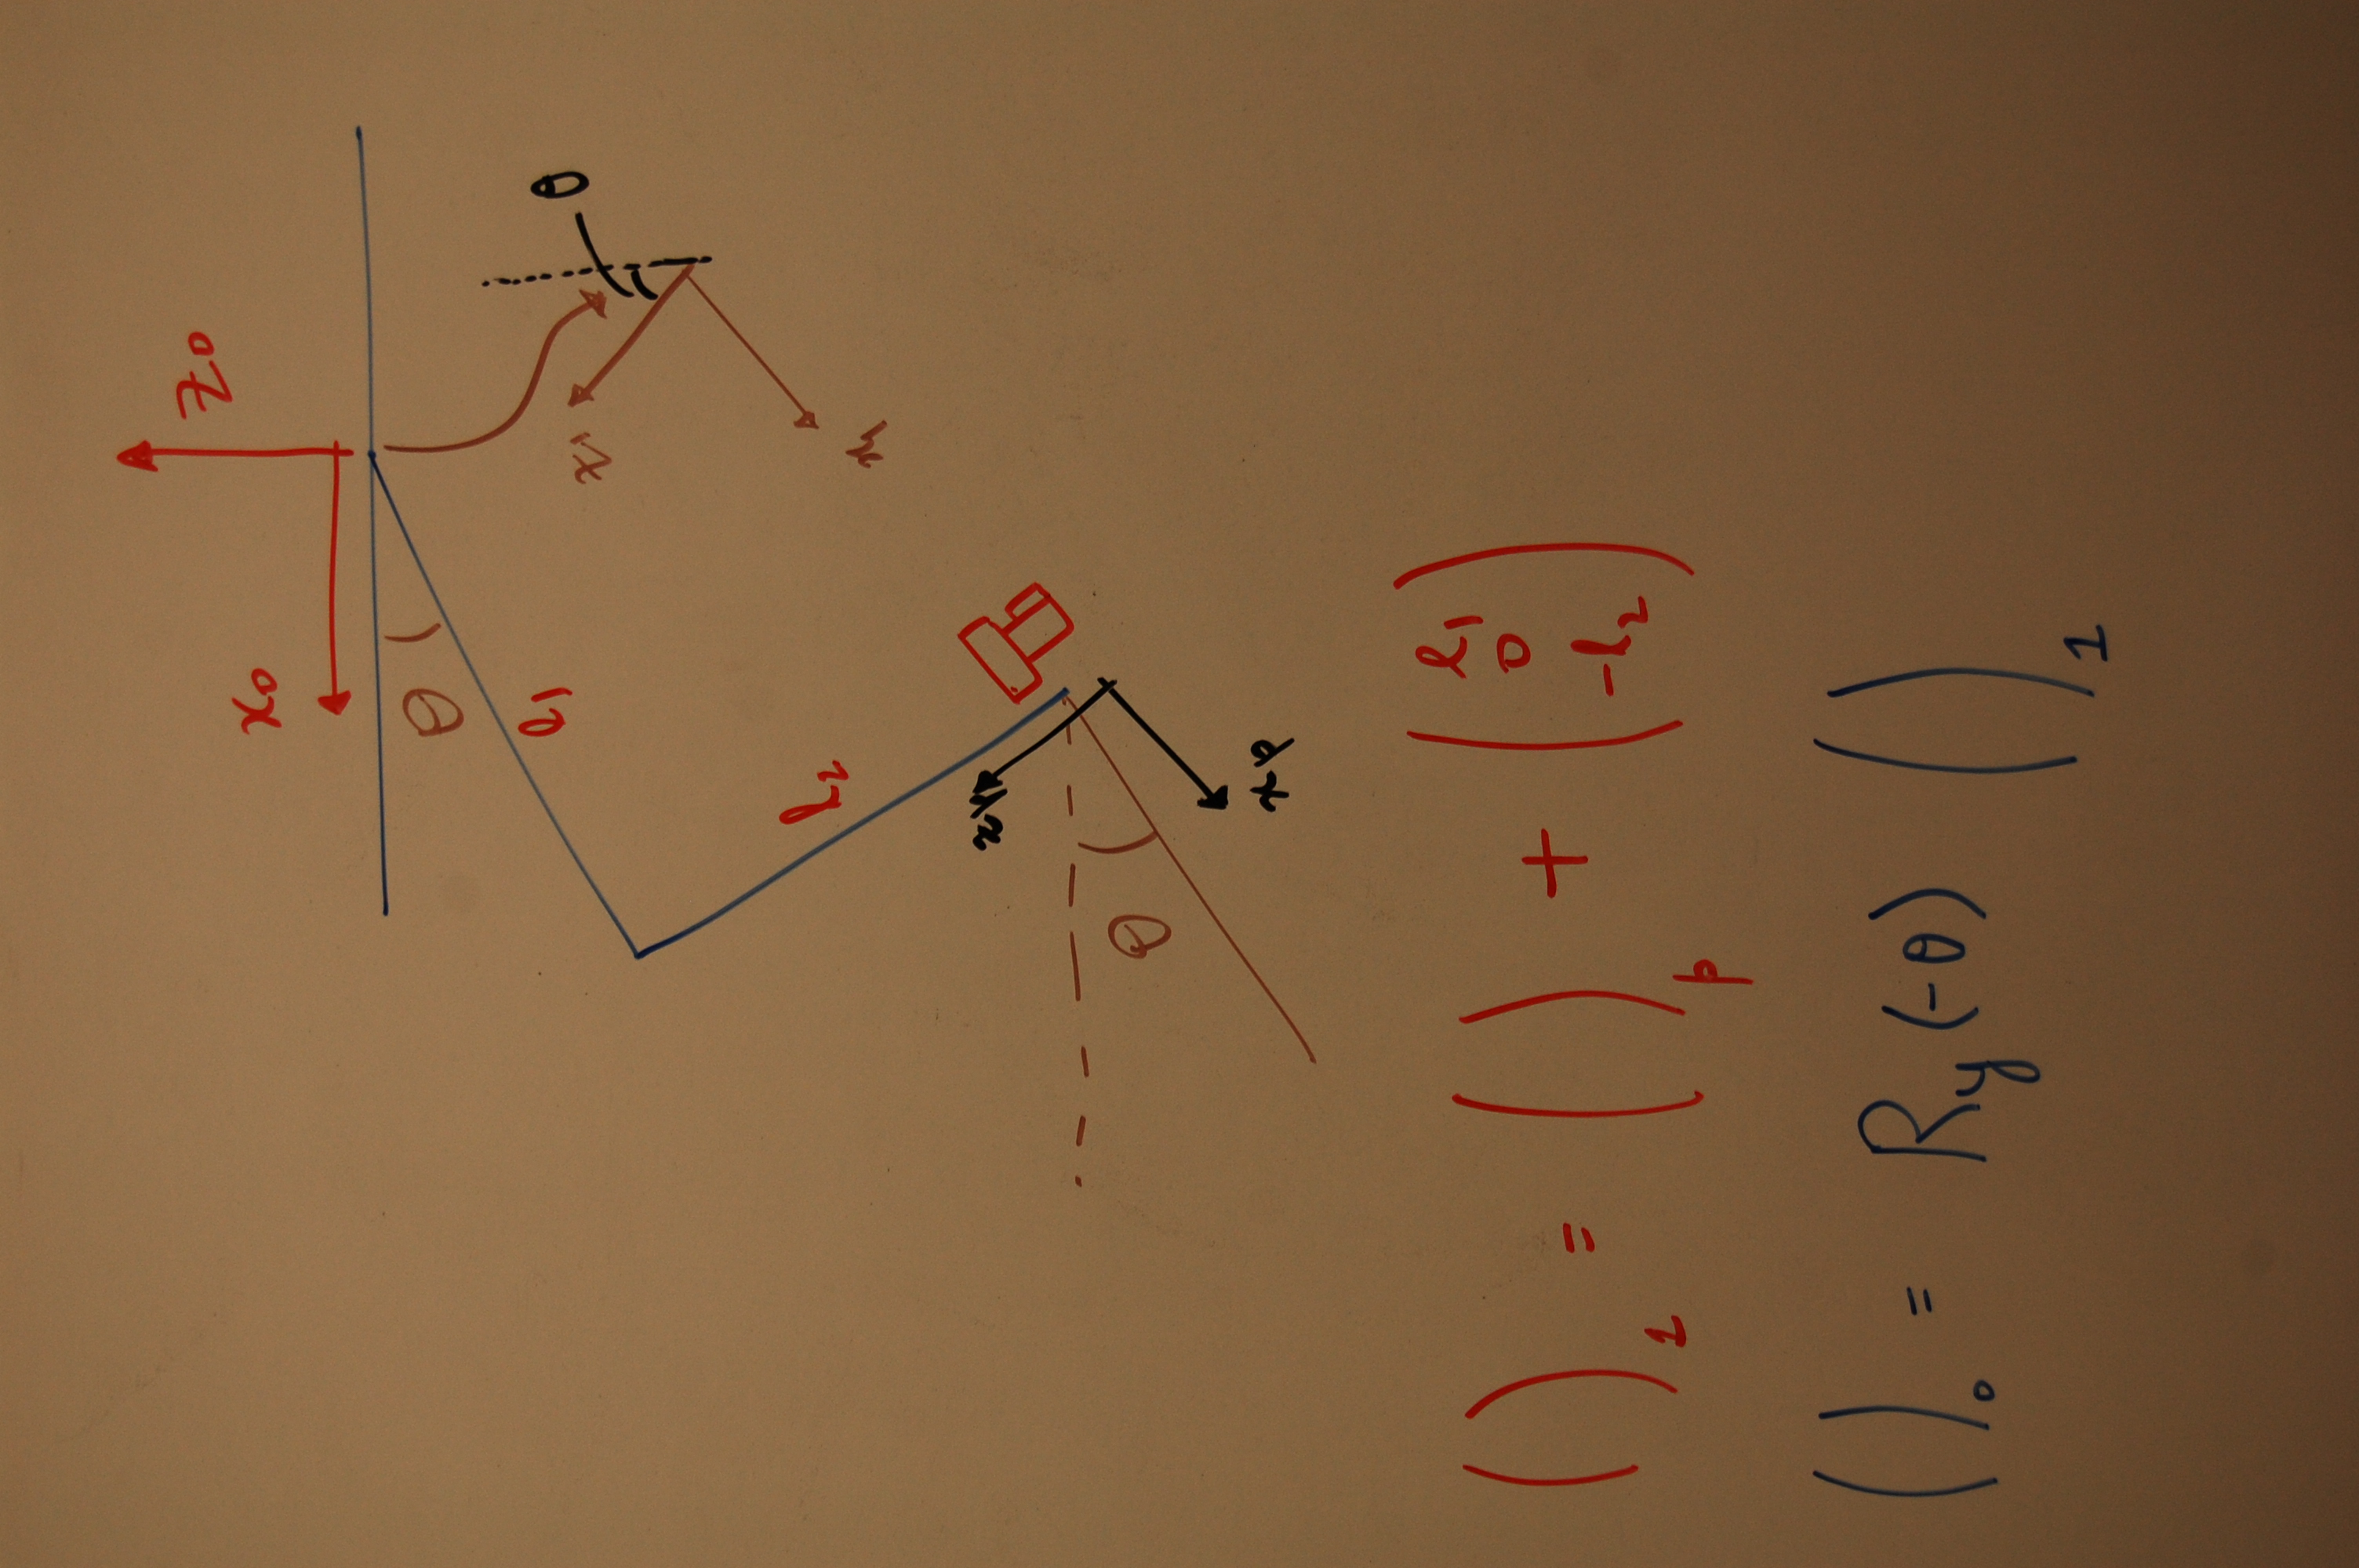 z₀
x₀
θ
l₁
θ
z₁
x₁
l₂
zp
θ
xp
( )₁ = ( )p + ( l₁
0
-l₂ )
( )₀ = Ry(-θ) ( )₁